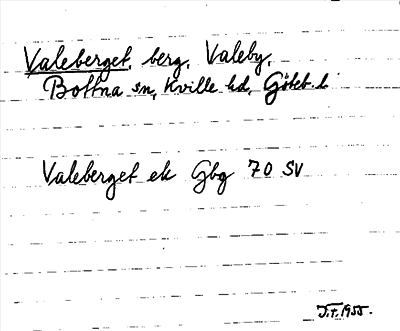 Valeberget, berg, Valeby,
Bottna sn, Kville hd, Göteb. l.
Valeberget ek Gbg 70 SV
J.t. 1955.